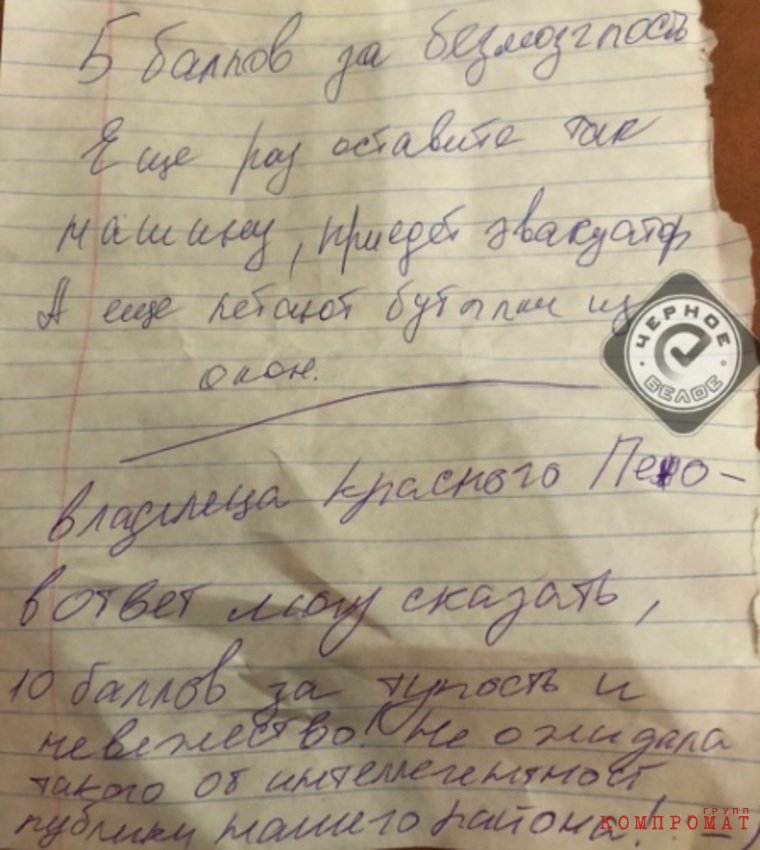 5 баллов за безмозглость
Еще раз оставите так
машину, приедет эвакуатор
А еще летают бутылки из
окон.
ЧЕРНОЕ
БЕЛОЕ
владелеца красного Пежо -
в ответ могу сказать,
10 баллов за тупость и
невежество! Не ожидала
такого от интеллегентност
публики нашего района! -)
ГРУПП
КОМПРОМАТ